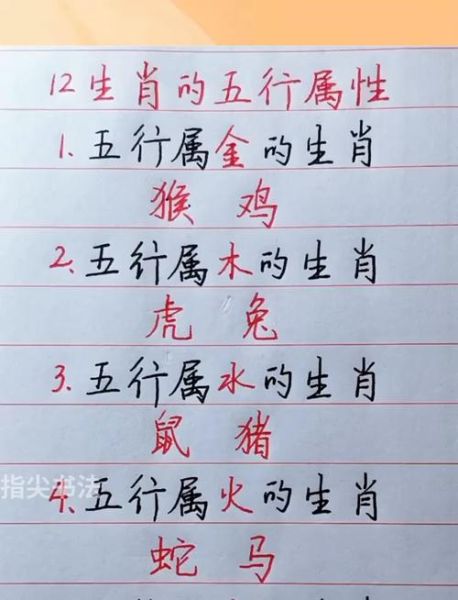 12生肖的五行属性
1.五行属金的生肖
猴 鸡
2.五行属木的生肖
虎 兔
3.五行属水的生肖
鼠 猪
指尖书法
4.五行属火的生肖
蛇 马